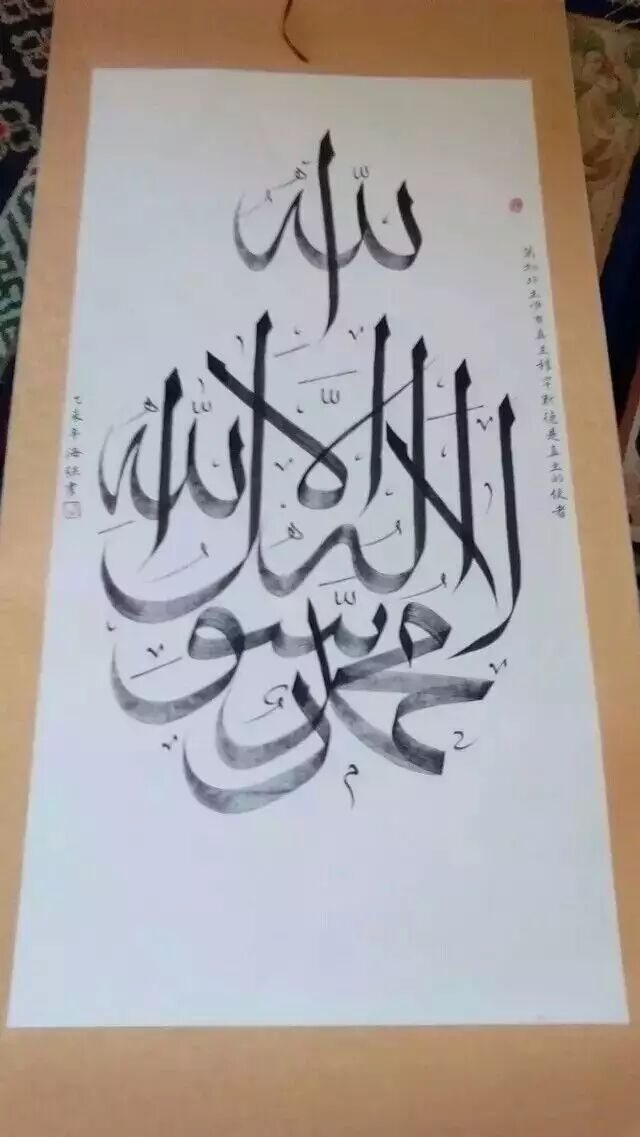 لا إله إلا الله
محمد رسول الله
萬物非主唯有真主穆罕默德是真主的使者
乙未年海書